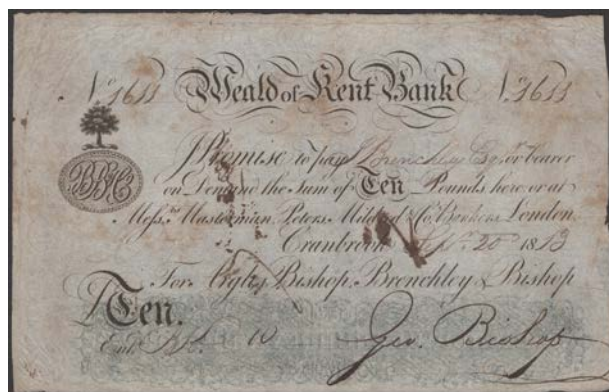 No. 1611 Weald of Kent Bank No. 1611
BB&Co
I Promise to pay Brenchley Esqr. or bearer
on Demand the Sum of Ten Pounds here or at
Messrs. Masterman, Peters, Mildred & Co. Bankers London
Cranbrook 20 1813
For Bishop, Brenchley & Bishop
£Ten.
Entd.
Geo. Bishop